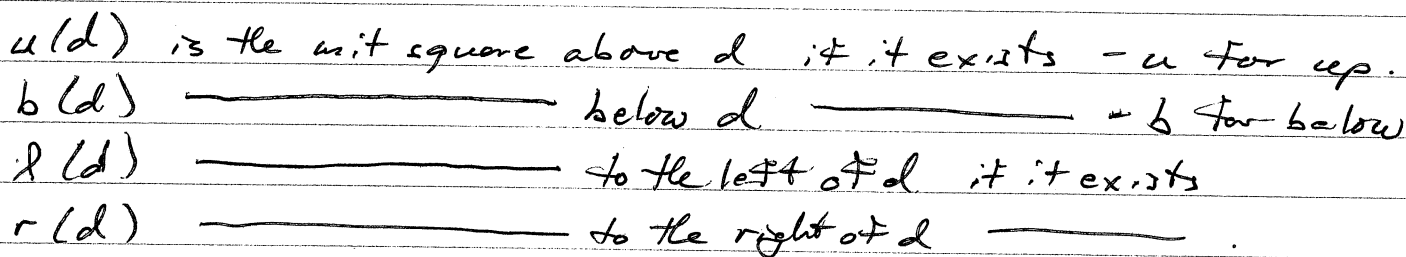 u(d) is the unit square above d if it exists - u for up.
b(d) ——— below d ——— - b for below
l(d) ——— to the left of d if it exists
r(d) ——— to the right of d ——— .